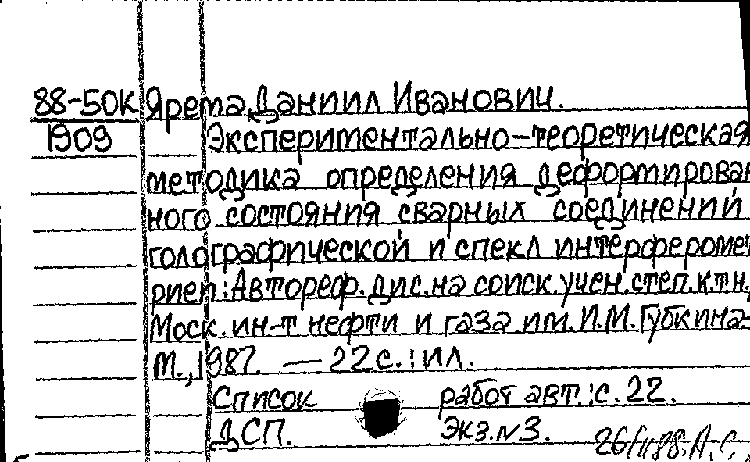 88-50К Ярема Даниил Иванович.
1909 Экспериментально-теоретическая
методика определения деформирован
ного состояния сварных соединений
голографической и спекл интерфероме
рией: Автореф. дис. на соиск. учен. степ. к.т.н.
Моск. ин-т нефти и газа им. И.М. Губкина-
М., 1987. — 22 с.: ил.
Список работ авт.: с. 22.
ДСП. Экз. №3.